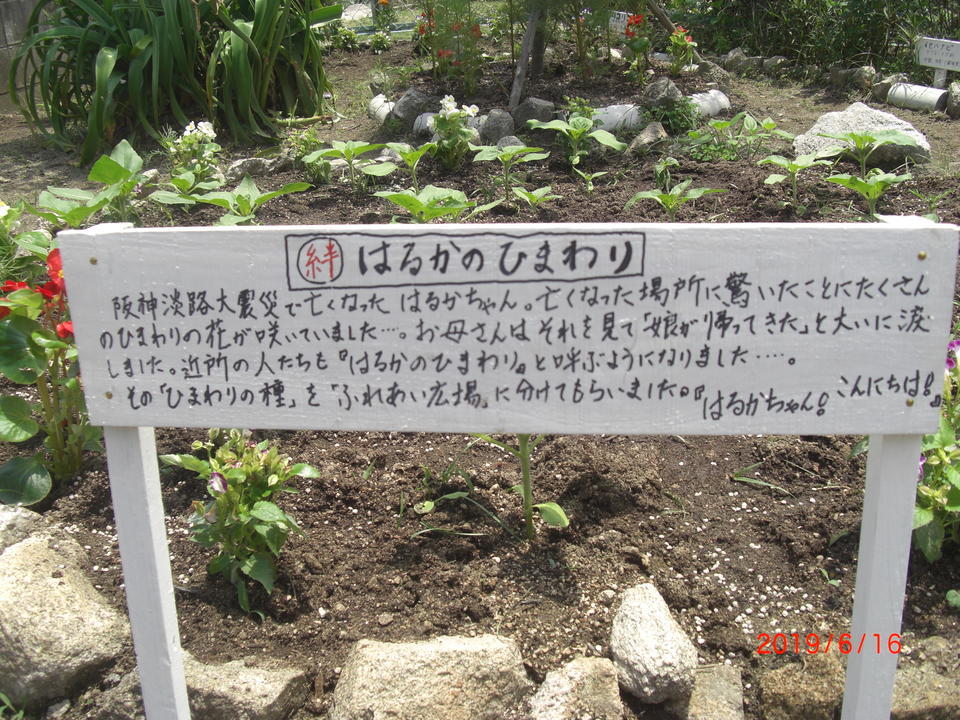 絆 はるかのひまわり
阪神淡路大震災で亡くなった はるかちゃん。亡くなった場所に驚いたことにたくさん
のひまわりの花が咲いていました…。お母さんはそれを見て「娘が帰ってきた」と大いに涙
しました。近所の人たちも『はるかのひまわり』と呼ぶようになりました….。
その「ひまわりの種」を「ふれあい広場」に分けてもらいました。『はるかちゃん! こんにちは!』
2019/6/16